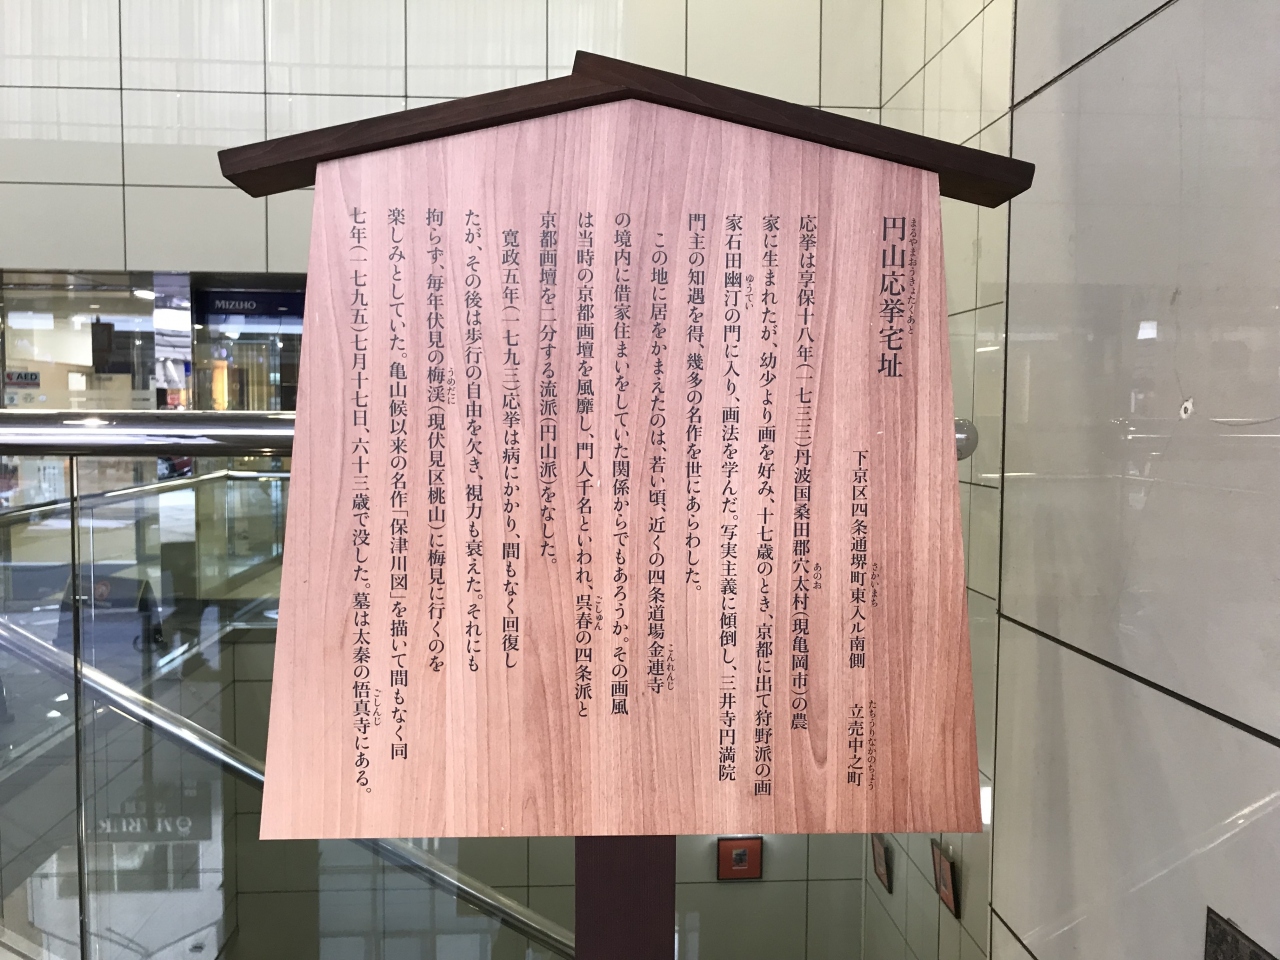 円山応挙宅址
まるやまおうきょたくあと
下京区四条通堺町東入ル南側　立売中之町
さかいまち　たちうりなかのちょう
応挙は享保十八年(一七三三)丹波国桑田郡穴太村(現亀岡市)の農
あのお
家に生まれたが、幼少より画を好み、十七歳のとき、京都に出て狩野派の画
家石田幽汀の門に入り、画法を学んだ。写実主義に傾倒し、三井寺円満院
ゆうてい
門主の知遇を得、幾多の名作を世にあらわした。
この地に居をかまえたのは、若い頃、近くの四条道場金連寺
こんれんじ
の境内に借家住まいをしていた関係からでもあろうか。その画風
は当時の京都画壇を風靡し、門人千名といわれ、呉春の四条派と
ごしゅん
京都画壇を二分する流派(円山派)をなした。
寛政五年(一七九三)応挙は病にかかり、間もなく回復し
たが、その後は歩行の自由を欠き、視力も衰えた。それにも
拘らず、毎年伏見の梅渓(現伏見区桃山)に梅見に行くのを
うめだに
楽しみとしていた。亀山候以来の名作「保津川図」を描いて間もなく同
七年(一七九五)七月十七日、六十三歳で没した。墓は太秦の悟真寺にある。
ごしんじ
MIZUHO
AED